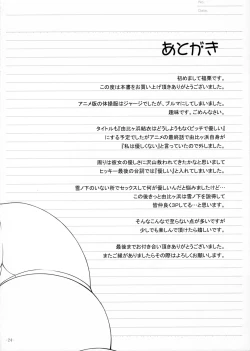 あとがき
初めまして福栗です。
この度は本書をお買い上げ頂きありがとうございました。
アニメ版の体操服はジャージでしたが、ブルマにしてしまいました。
趣味です。ごめんなさい。
タイトルも『由比ヶ浜結衣はどうしようもなくビッチで優しい』
にする予定でしたがアニメの最終話で由比ヶ浜自身が
『私は優しくない』と言っていたので外しました。
周りは彼女の優しさに沢山救われてきたかなと思いまして
ヒッキー最後の台詞では『優しい』と入れてしまいました。
雪ノ下のいない所でセックスして何が優しいんだと悩みましたけど…
この後きっと由比ヶ浜は雪ノ下を説得して
皆仲良く3Pしてる…と思います。
そんなこんなで至らない点が多いですが
少しでも楽しんで頂けたら嬉しいです。
最後までお付き合い頂きありがとうございました。
またご縁がありましたらその際はよろしくお願いします。